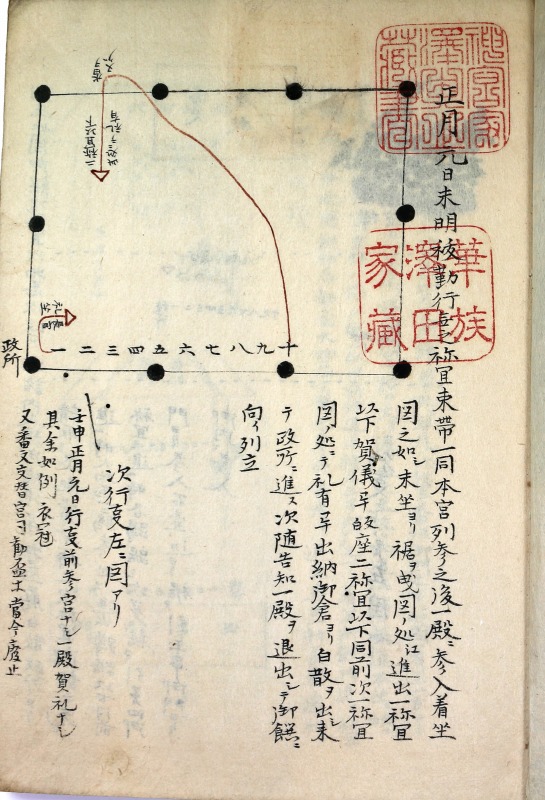 正月元日未明後勤行无之祢冝束帯一同本宮列参之後一殿ニ参入着坐
図之如シ末坐ヨリ裾ヲ曳図ノ処江進出一祢冝
以下賀儀畢皈座二祢冝以下同前次一祢冝
図ノ処ニテ礼有畢出納御倉ヨリ白散ヲ出シ来
テ政所ニ進ス次随告知一殿ヲ退出シテ御饌ニ
向ノ列立
次行叓左ニ図アリ
壬申正月元日行叓前参宮ナシ一殿賀礼ナシ
其余如例衣冠
又番文交替宮司節盃ホ當今廃止
政所
一二三四五六七八九十
二祢冝以下
華族
澤田
家藏